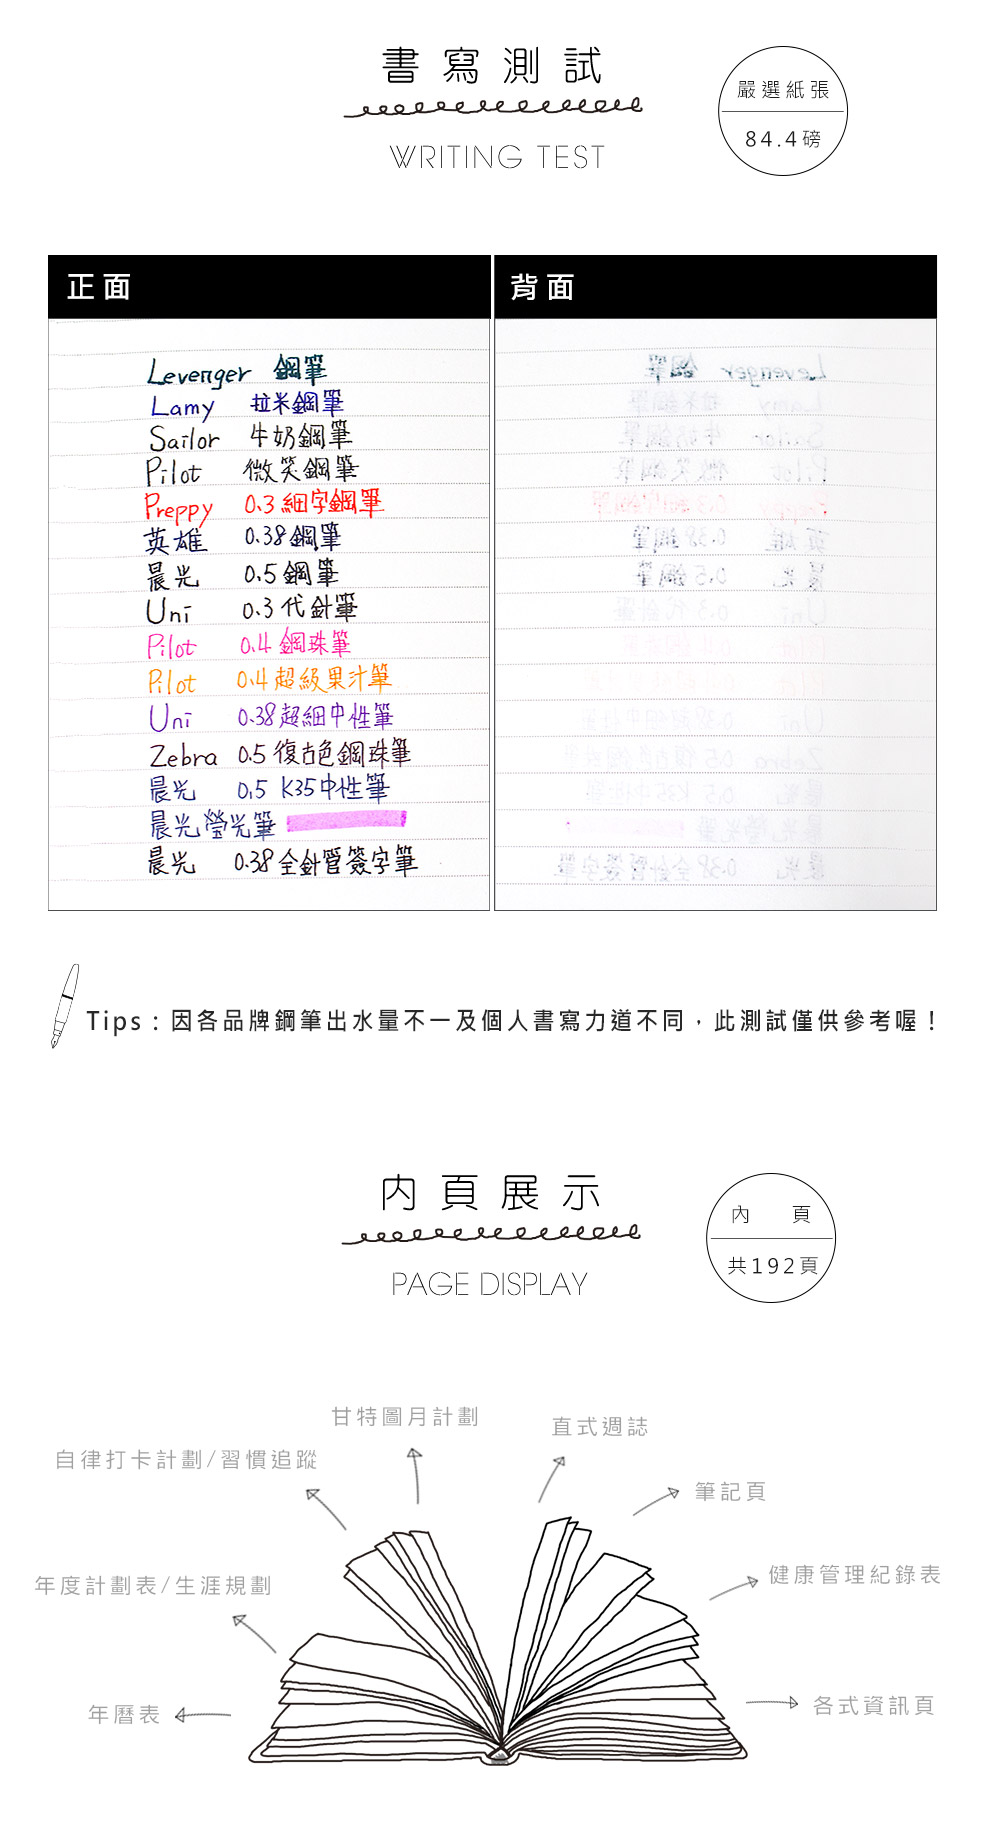 書寫測試
WRITING TEST
嚴選紙張
84.4磅
正面
背面
Levenger 鋼筆
Lamy 拉米鋼筆
Sailor 牛奶鋼筆
Pilot 微笑鋼筆
Preppy 0.3 細字鋼筆
英雄 0.38 鋼筆
晨光 0.5 鋼筆
Uni 0.3 代針筆
Pilot 0.4 鋼珠筆
Pilot 0.4 超級果汁筆
Uni 0.38 超細中性筆
Zebra 0.5 復古色鋼珠筆
晨光 0.5 K35 中性筆
晨光螢光筆
晨光 0.38 全針管簽字筆
Tips : 因各品牌鋼筆出水量不一及個人書寫力道不同，此測試僅供參考喔！
內頁展示
PAGE DISPLAY
內 頁
共192頁
甘特圖月計劃
直式週誌
自律打卡計劃/習慣追蹤
筆記頁
年度計劃表/生涯規劃
健康管理紀錄表
年曆表
各式資訊頁